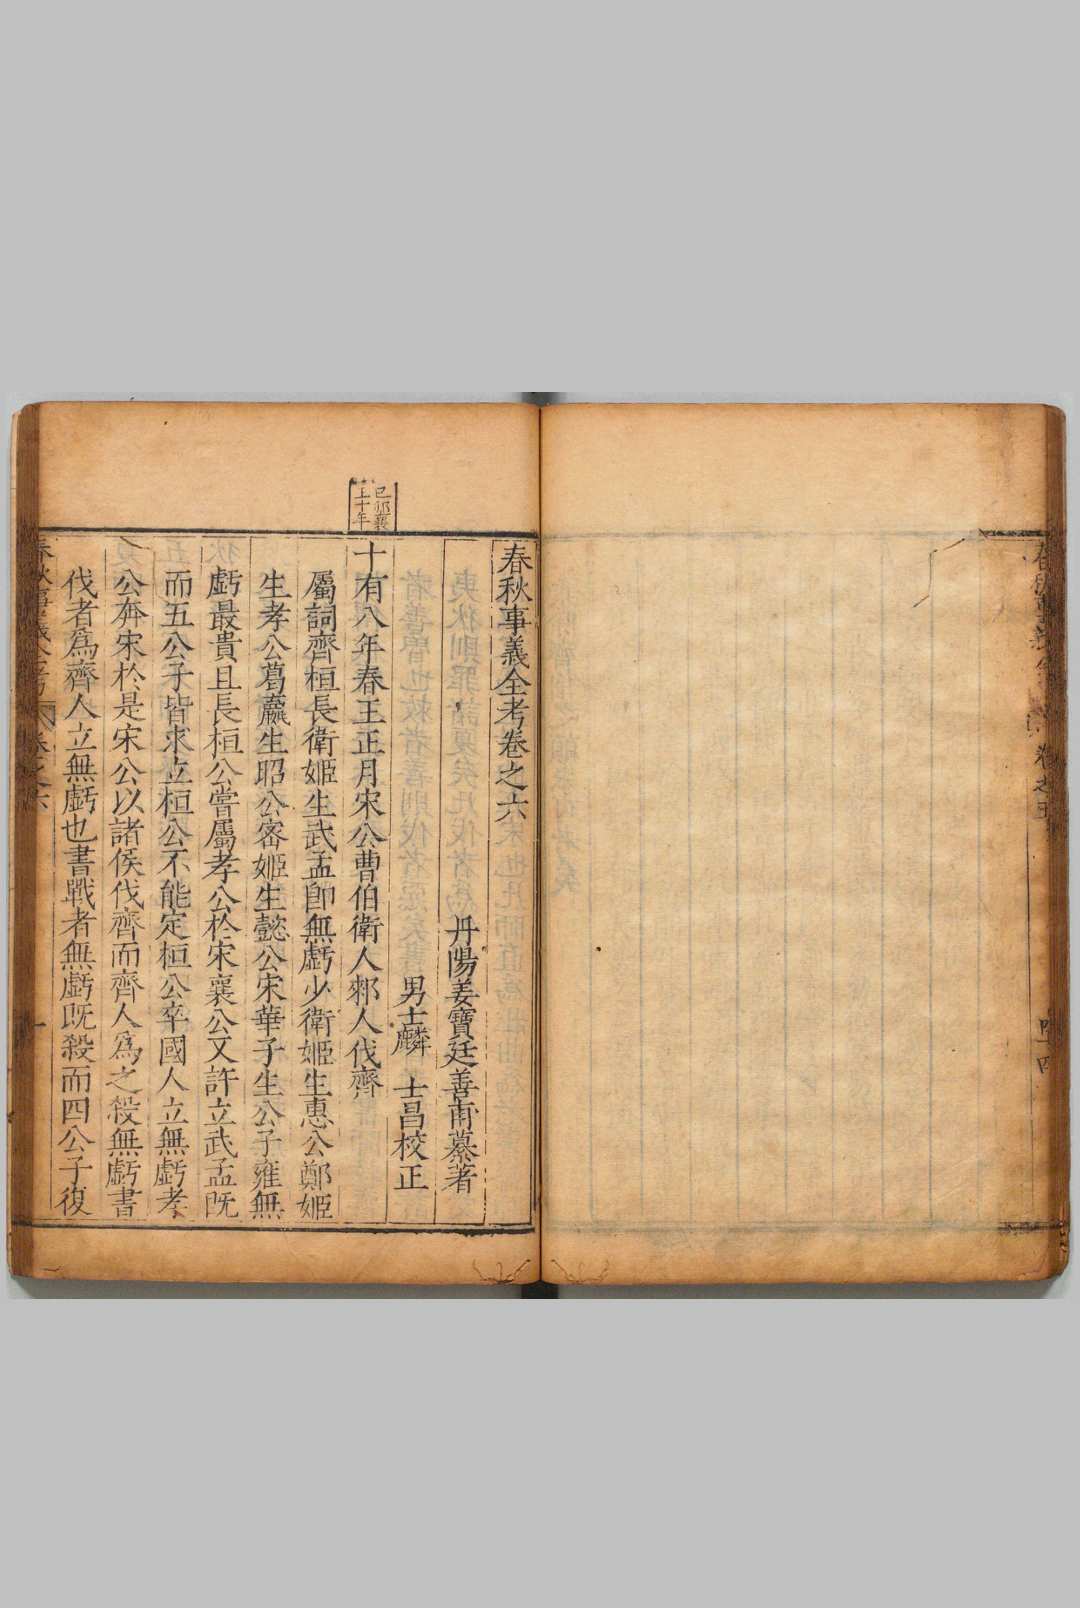 春秋事義全考卷之六
丹陽姜寶廷善甫纂著
男士麟 士昌校正
己卯襄
王十年
十有八年春王正月宋公曹伯衛人邾人伐齊
屬詞齊桓長衛姬生武孟即無虧少衛姬生惠公鄭姬
生孝公葛嬴生昭公密姬生懿公宋華子生公子雍無
虧最貴且長桓公嘗屬孝公於宋襄公又許立武孟既
而五公子皆求立桓公不能定桓公卒國人立無虧孝
公奔宋於是宋公以諸侯伐齊而齊人為之殺無虧書
伐者為齊人立無虧也書戰者無虧既殺而四公子復
春秋事義全考 卷之六 一